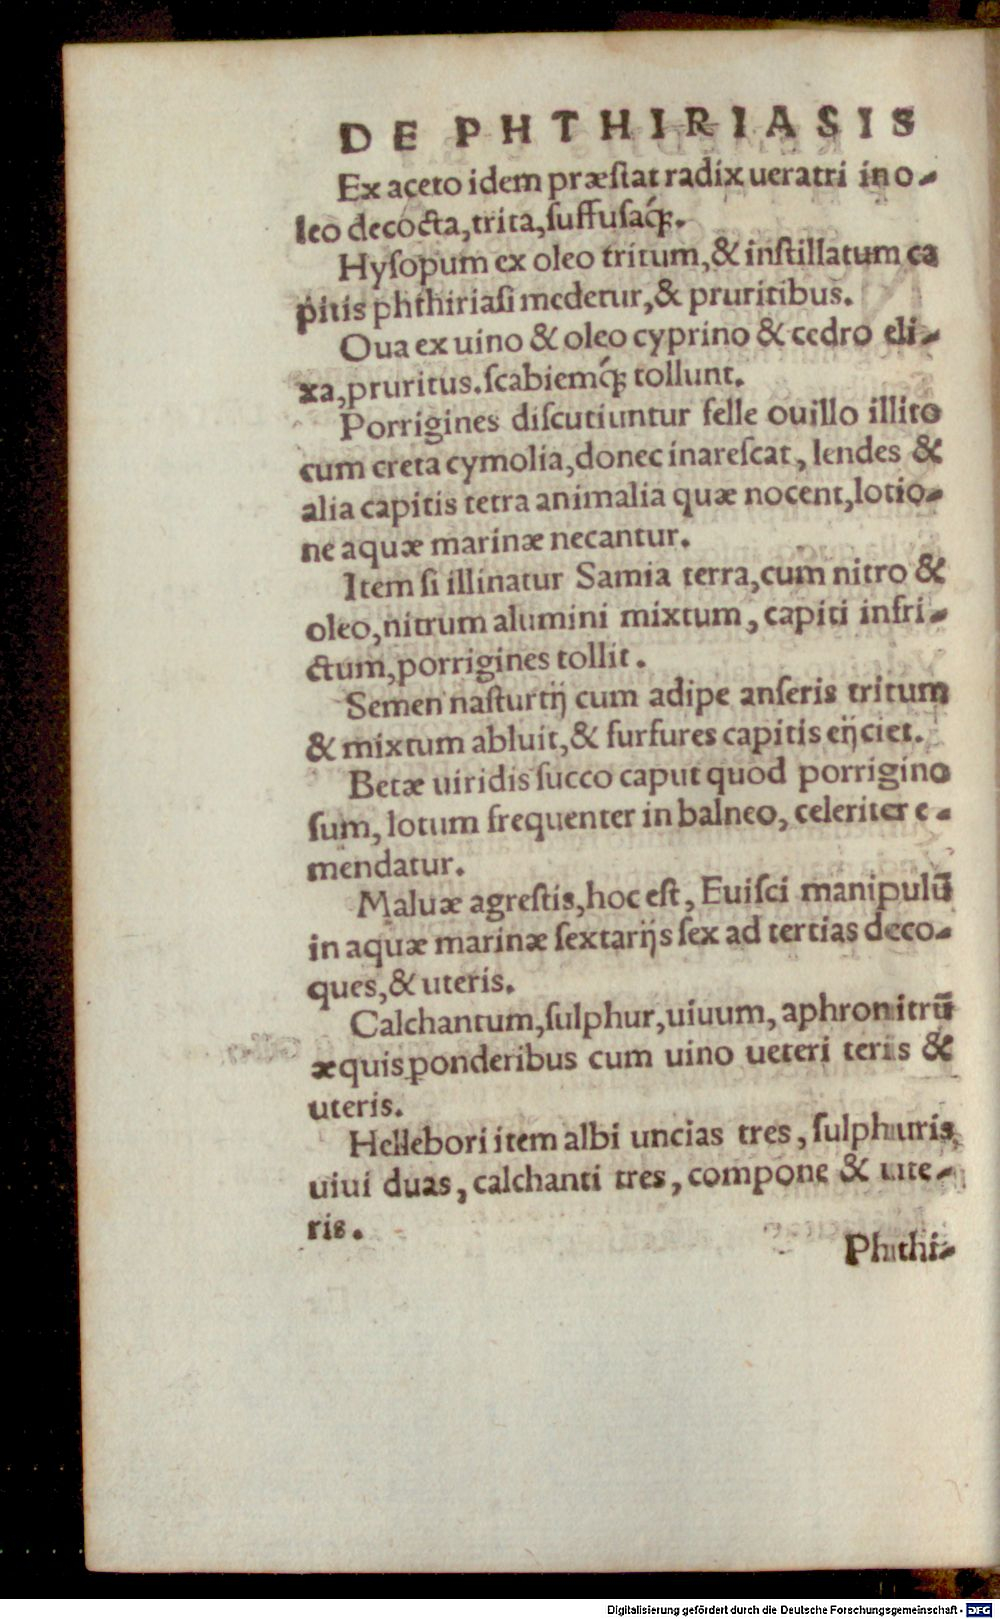 DE PHTHIRIASIS
Ex aceto idem præſtat radix ueratri in o-
leo decocta, trita, ſuffuſaq́;.
Hyſopum ex oleo tritum, & inſtillatum ca
pitis phthiriaſi medetur, & pruritibus.
Oua ex uino & oleo cyprino & cedro eli-
xa, pruritus. ſcabiemq́; tollunt.
Porrigines diſcutiuntur felle ouillo illito
cum creta cymolia, donec inareſcat, lendes &
alia capitis tetra animalia quæ nocent, lotio-
ne aquæ marinæ necantur.
Item ſi illinatur Samia terra, cum nitro &
oleo, nitrum alumini mixtum, capiti infri-
ctum, porrigines tollit.
Semen naſturtij cum adipe anſeris tritum
& mixtum abluit, & furfures capitis eijciet.
Betæ uiridis ſucco caput quod porrigino
ſum, lotum frequenter in balneo, celeriter e-
mendatur.
Maluæ agreſtis, hoc eſt, Euiſci manipulū
in aquæ marinæ ſextarijs ſex ad tertias deco-
ques, & uteris.
Calchantum, ſulphur, uiuum, aphronitrū
æquis ponderibus cum uino ueteri teris &
uteris.
Hellebori item albi uncias tres, ſulphuris
uiui duas, calchanti tres, compone & ute-
ris.
Phthi-
Digitalisierung gefördert durch die Deutsche Forschungsgemeinschaft - DFG